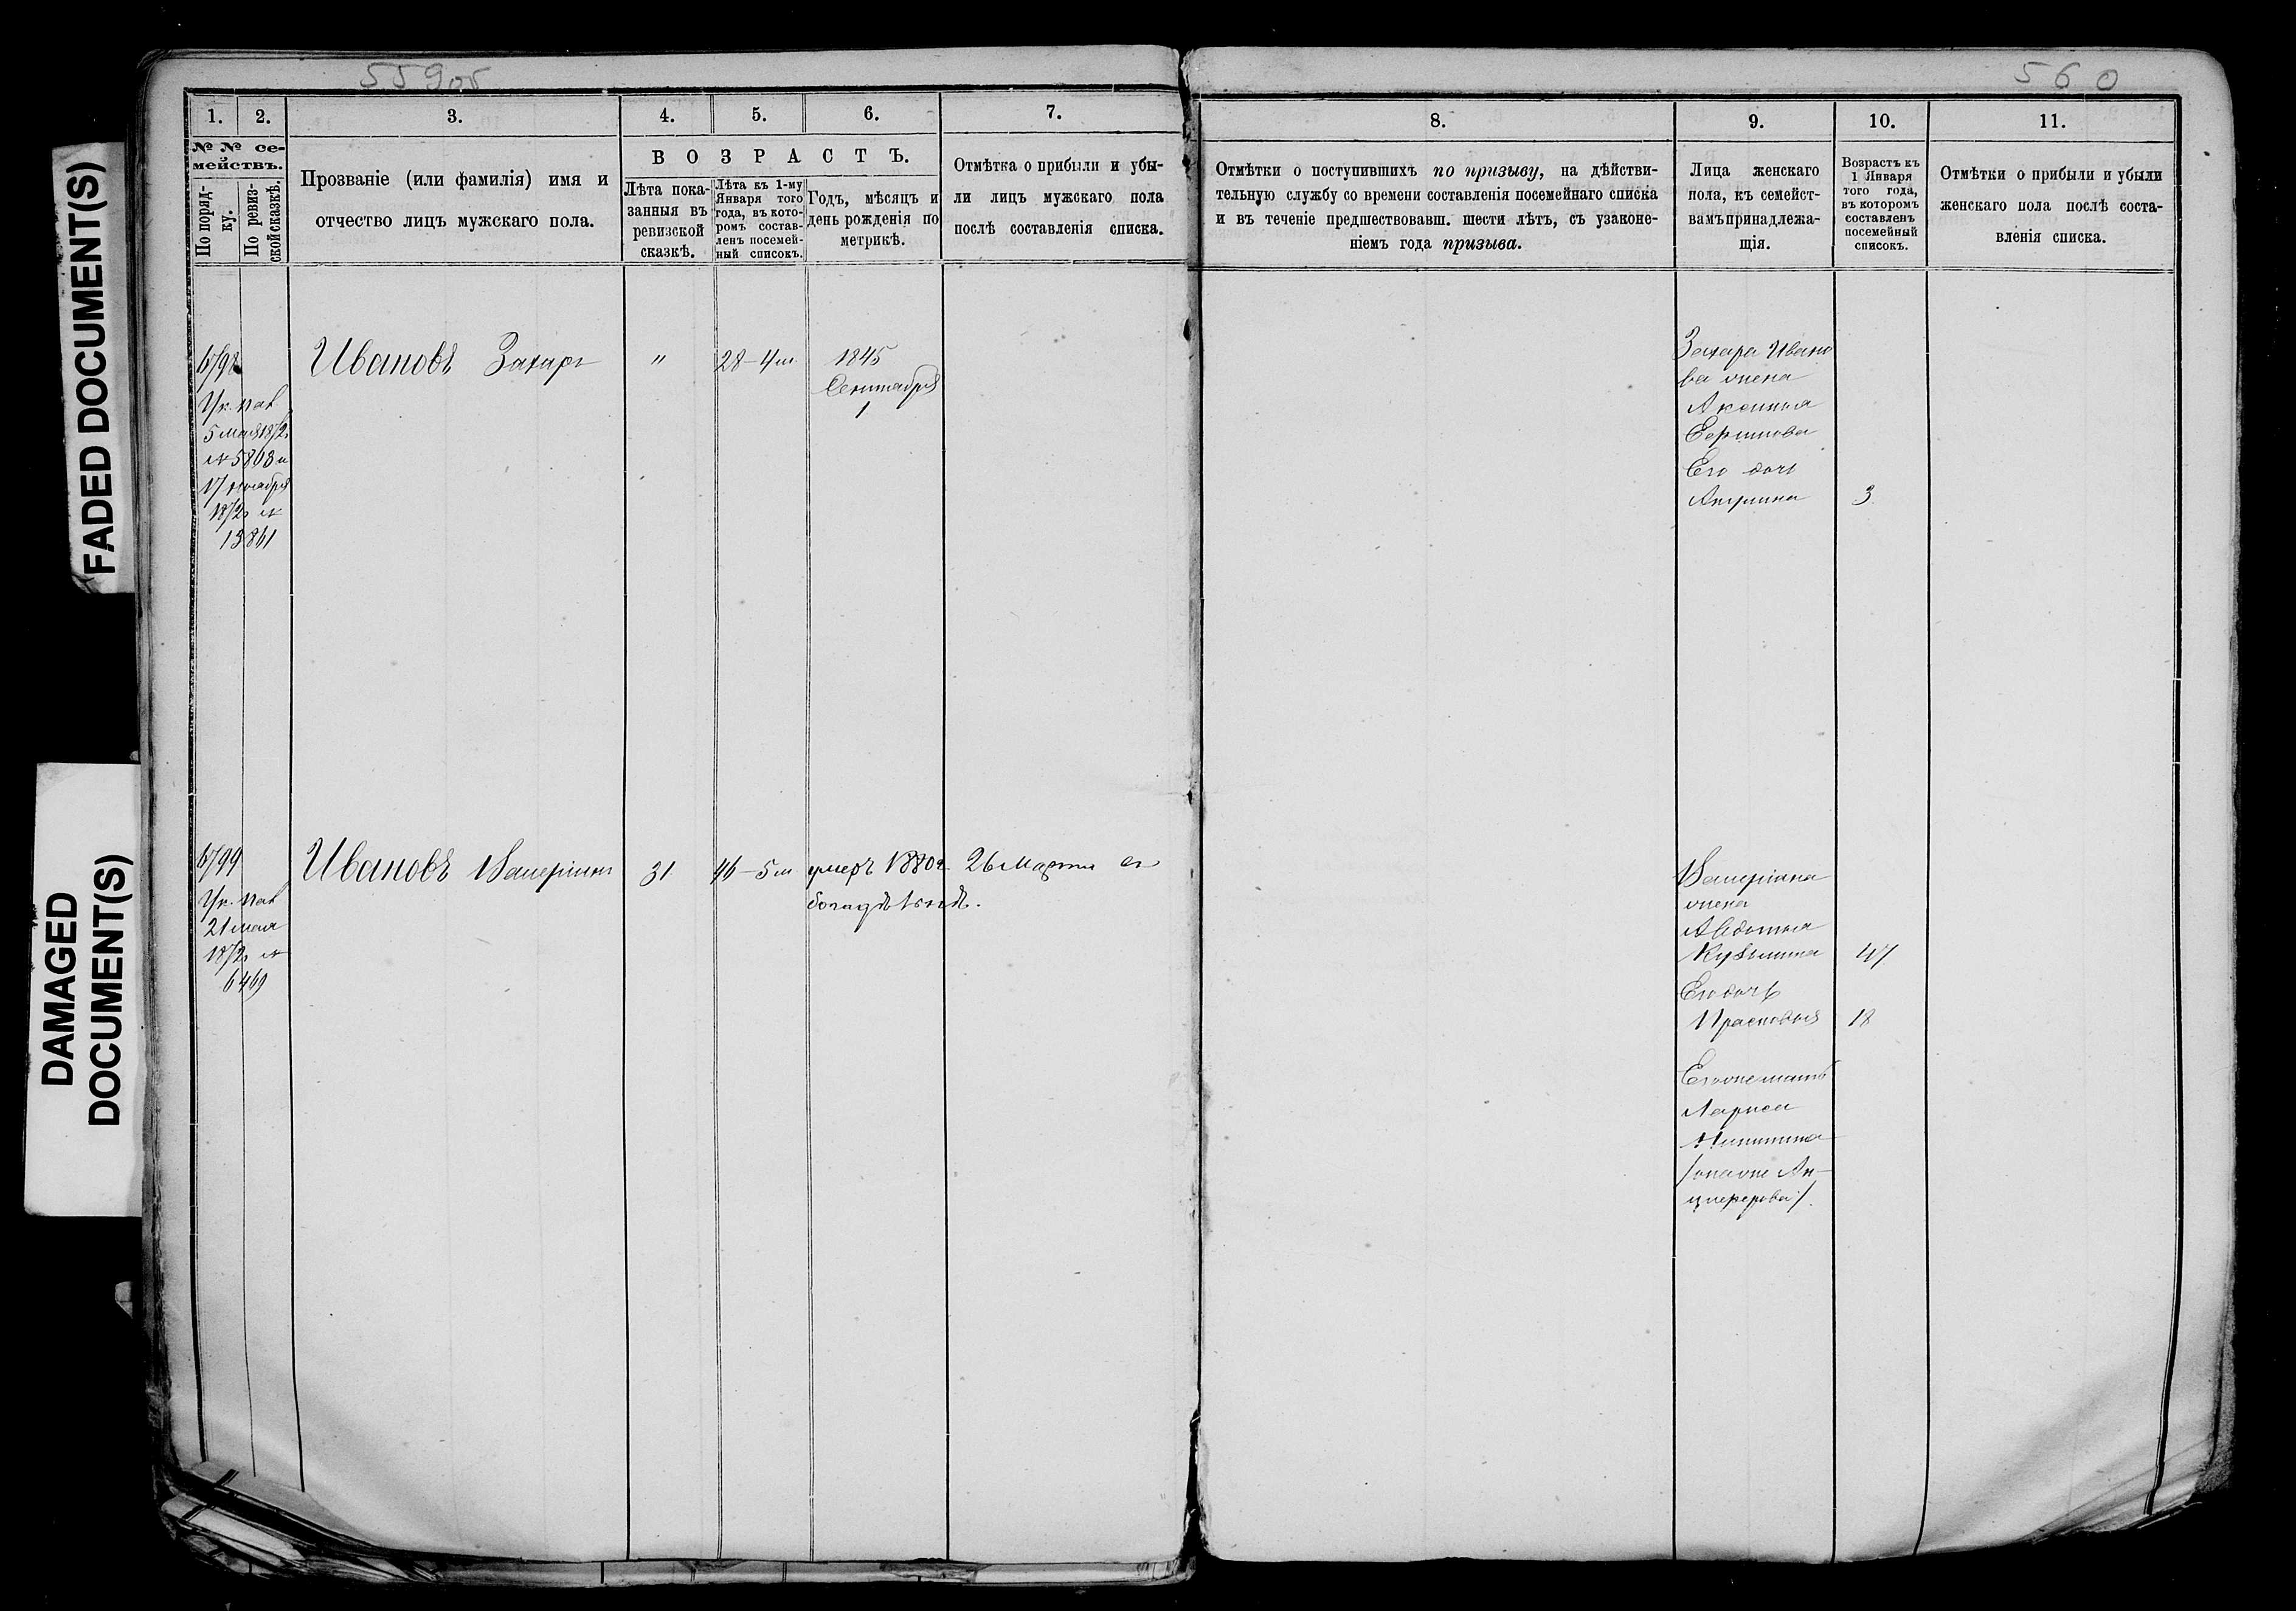 559об
560
FADED DOCUMENT(S)
DAMAGED
DOCUMENT(S)
1.
2.
3.
4.
5.
6.
7.
8.
9.
10.
11.
№ № се-
мействъ.
По поряд-
ку.
По ревиз-
ской сказкѣ.
Прозваніе (или фамилія) имя и
отчество лицъ мужскаго пола.
ВОЗРАСТЪ.
Лѣта пока-
занныя въ
ревизской
сказкѣ.
Лѣта къ 1-му
Января того
года, въ кото-
ромъ состав-
ленъ посемей-
ный списокъ.
Годъ, мѣсяцъ и
день рожденія по
метрикѣ.
Отмѣтка о прибыли и убы-
ли лицъ мужскаго пола
послѣ составленія списка.
Отмѣтки о поступившихъ по призыву, на дѣйстви-
тельную службу со времени составленія посемейнаго списка
и въ теченіе предшествовавш. шести лѣтъ, съ узаконе-
ніемъ года призыва.
Лица женскаго
пола, къ семейст-
вамъ принадлежа-
щія.
Возрастъ къ
1 Января
того года,
въ которомъ
составленъ
посемейный
списокъ.
Отмѣтки о прибыли и убыли
женскаго пола послѣ соста-
вленія списка.
6798
5 мая 1872
17 ноября
1872 №
13861
Ивановъ Захаръ
"
28-4 м
1845
Сентября
1
Захара Ивано
ва жена
Аксинья
Его дочь
3
6799
21 мая
1872 №
6469
Ивановъ Валеріанъ
31
46-5 м
умеръ 1880 г. 26 Марта въ
богадѣльнѣ.
Валеріана
жена
Авдотья
Кузьмина
47
Его дочь
Прасковья
18
Его же мать
Лариса
Никитина
/она же Ан-
циферова/.